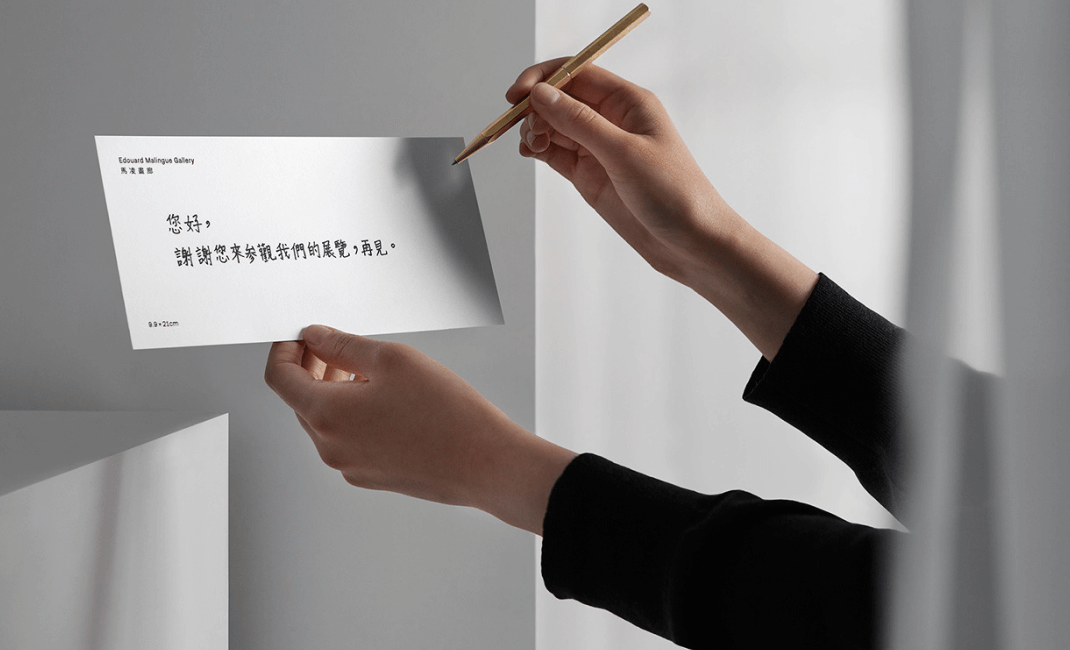 Edouard Malingue Gallery
馬凌畫廊
您好，
謝謝您來參觀我們的展覽，再見。
9.9×21cm